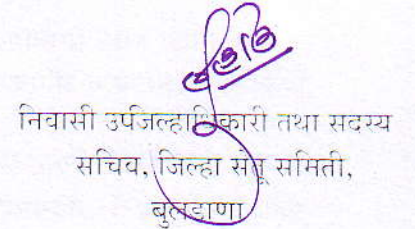 निवासी उपजिल्हाधिकारी तथा सदस्य
सचिव, जिल्हा सेतू समिती,
बुलडाणा